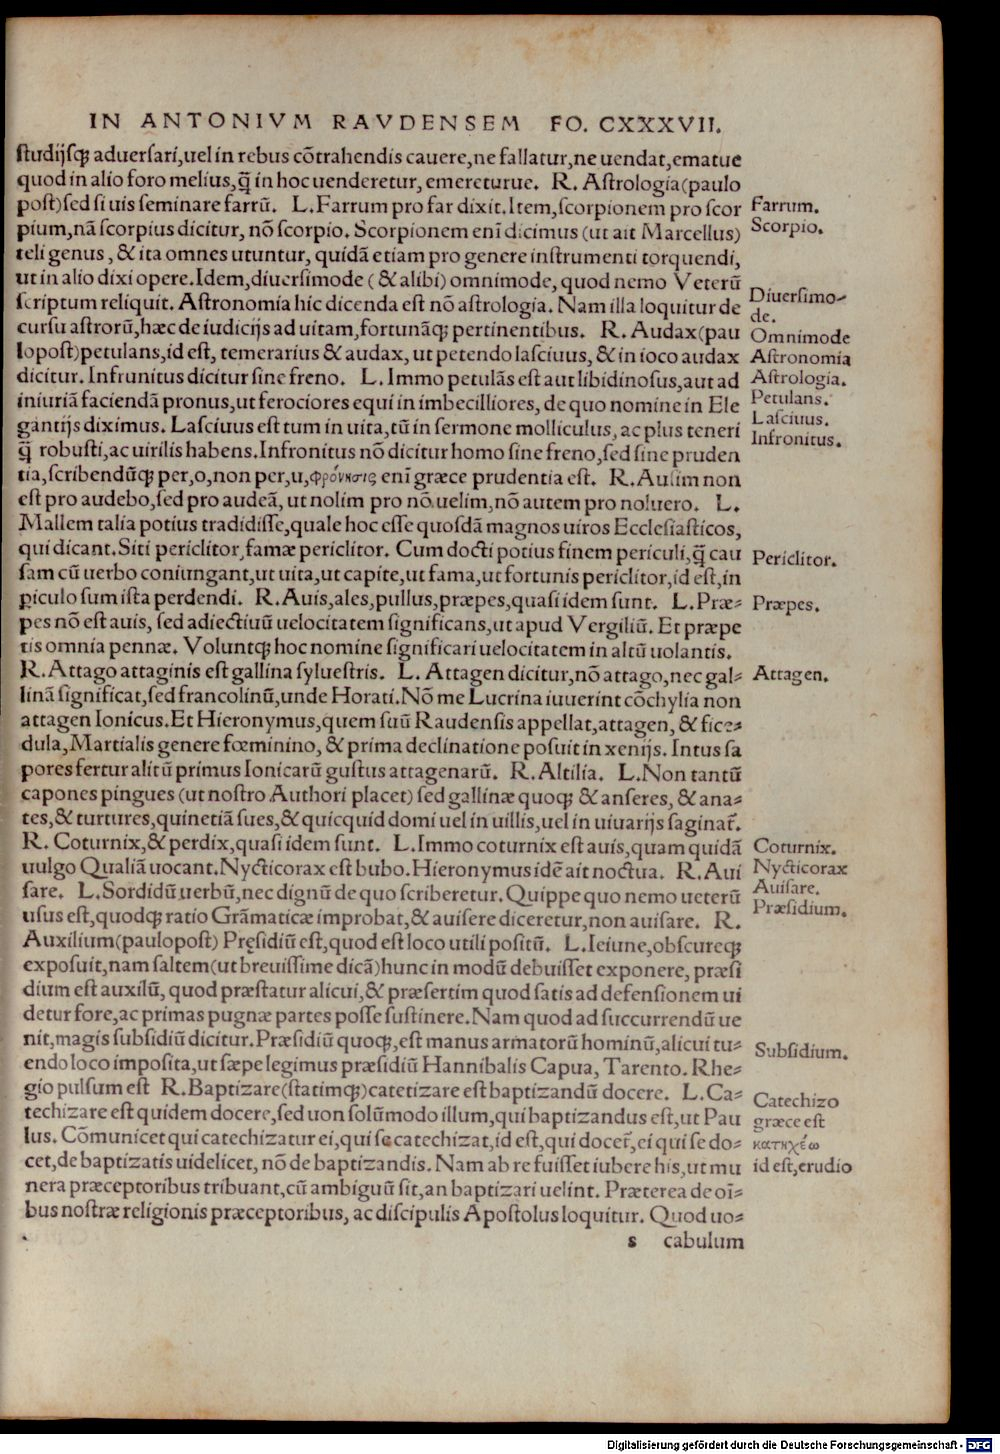 IN ANTONIVM RAVDENSEM FO. CXXXVII.
studijsq; aduersari, uel in rebus cõtrahendis cauere, ne fallatur, ne uendat, ematue
quod in alio foro melius, q̃ in hoc uenderetur, emereturue. R. Astrologia (paulo
post) sed si uis seminare farrũ. L. Farrum pro far dixit. Item, scorpionem pro scor
pium, nã scorpius dicitur, nõ scorpio. Scorpionem enĩ dicimus (ut ait Marcellus)
teli genus, & ita omnes utuntur, quidã etiam pro genere instrumenti torquendi,
ut in alio dixi opere. Idem, diuersimode (& alibi) omnimode, quod nemo Veterũ
scriptum reliquit. Astronomia hic dicenda est nõ astrologia. Nam illa loquitur de
cursu astrorũ, hæc de iudicijs ad uitam, fortunãq; pertinentibus. R. Audax (pau
lopost) petulans, id est, temerarius & audax, ut petendo lasciuus, & in ioco audax
dicitur. Infrunitus dicitur sine freno. L. Immo petulãs est aut libidinosus, aut ad
iniuriã faciendã pronus, ut ferociores equi in imbecilliores, de quo nomine in Ele
gantijs diximus. Lasciuus est tum in uita, tũ in sermone molliculus, ac plus teneri
q̃ robusti, ac uirilis habens. Infronitus nõ dicitur homo sine freno, sed sine pruden
tia, scribendũq; per, o, non per, u, φρόνησις enĩ græce prudentia est. R. Ausim non
est pro audebo, sed pro audeã, ut nolim pro nõ uelim, nõ autem pro noluero. L.
Mallem talia potius tradidisse, quale hoc esse quosdã magnos uiros Ecclesiasticos,
qui dicant. Siti periclitor, famæ periclitor. Cum docti potius finem periculi, q̃ cau
sam cũ uerbo coniungant, ut uita, ut capite, ut fama, ut fortunis periclitor, id est, in
piculo sum ista perdendi. R. Auis, ales, pullus, præpes, quasi idem sunt. L. Præ-
pes nõ est auis, sed adiectiuũ uelocitatem significans, ut apud Vergiliũ. Et præpe
tis omnia pennæ. Voluntq; hoc nomine significari uelocitatem in altũ uolantis.
R. Attago attaginis est gallina syluestris. L. Attagen dicitur, nõ attago, nec gal-
linã significat, sed francolinũ, unde Horati. Nõ me Lucrina iuuerint cõchylia non
attagen Ionicus. Et Hieronymus, quem suũ Raudensis appellat, attagen, & fice-
dula, Martialis genere fœminino, & prima declinatione posuit in xenijs. Intus sa
pores fertur alitũ primus Ionicarũ gustus attagenarũ. R. Altilia. L. Non tantũ
capones pingues (ut nostro Authori placet) sed gallinæ quoq; & anseres, & ana-
tes, & turtures, quinetiã sues, & quicquid domi uel in uillis, uel in uiuarijs saginat̃.
R. Coturnix, & perdix, quasi idem sunt. L. Immo coturnix est auis, quam quidã
uulgo Qualiã uocant. Nycticorax est bubo. Hieronymus idẽ ait noctua. R. Aui
sare. L. Sordidũ uerbũ, nec dignũ de quo scriberetur. Quippe quo nemo ueterũ
usus est, quodq; ratio Grãmaticæ improbat, & auisere diceretur, non auisare. R.
Auxilium (paulopost) Pręsidiũ est, quod est loco utili positũ. L. Ieiune, obscureq;
exposuit, nam saltem (ut breuissime dicã) hunc in modũ debuisset exponere, præsi
dium est auxilũ, quod præstatur alicui, & præsertim quod satis ad defensionem ui
detur fore, ac primas pugnæ partes posse sustinere. Nam quod ad succurrendũ ue
nit, magis subsidiũ dicitur. Præsidiũ quoq;, est manus armatorũ hominũ, alicui tu-
endo loco imposita, ut sæpe legimus præsidiũ Hannibalis Capua, Tarento. Rhe-
gio pulsum est R. Baptizare (statimq;) catetizare est baptizandũ docere. L. Ca-
techizare est quidem docere, sed uon solũmodo illum, qui baptizandus est, ut Pau
lus. Cõmunicet qui catechizatur ei, qui se catechizat, id est, qui docet̃, ei qui se do-
cet, de baptizatis uidelicet, nõ de baptizandis. Nam ab re fuisset iubere his, ut mu
nera præceptoribus tribuant, cũ ambiguũ sit, an baptizari uelint. Præterea de oĩ-
bus nostræ religionis præceptoribus, ac discipulis Apostolus loquitur. Quod uo-
s cabulum
Farrum.
Scorpio.
Diuersimo-
de.
Omnimode
Astronomia
Astrologia.
Petulans.
Lasciuus.
Infronitus.
Periclitor.
Præpes.
Attagen.
Coturnix.
Nycticorax
Auisare.
Præsidium.
Subsidium.
Catechizo
græce est
κατηχέω
id est, erudio
Digitalisierung gefördert durch die Deutsche Forschungsgemeinschaft - DFG